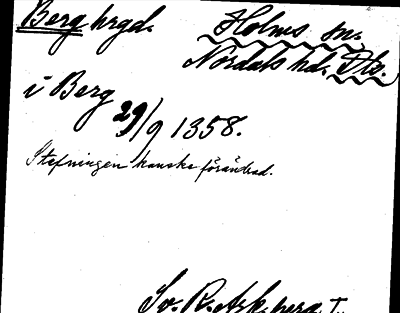 Berg hrgd. Holms sn.
Nordals hd. Dls.
i Berg
29/9 1358.
Stafningen kanske förändrad.
Sv. R. Ark. perg. I.